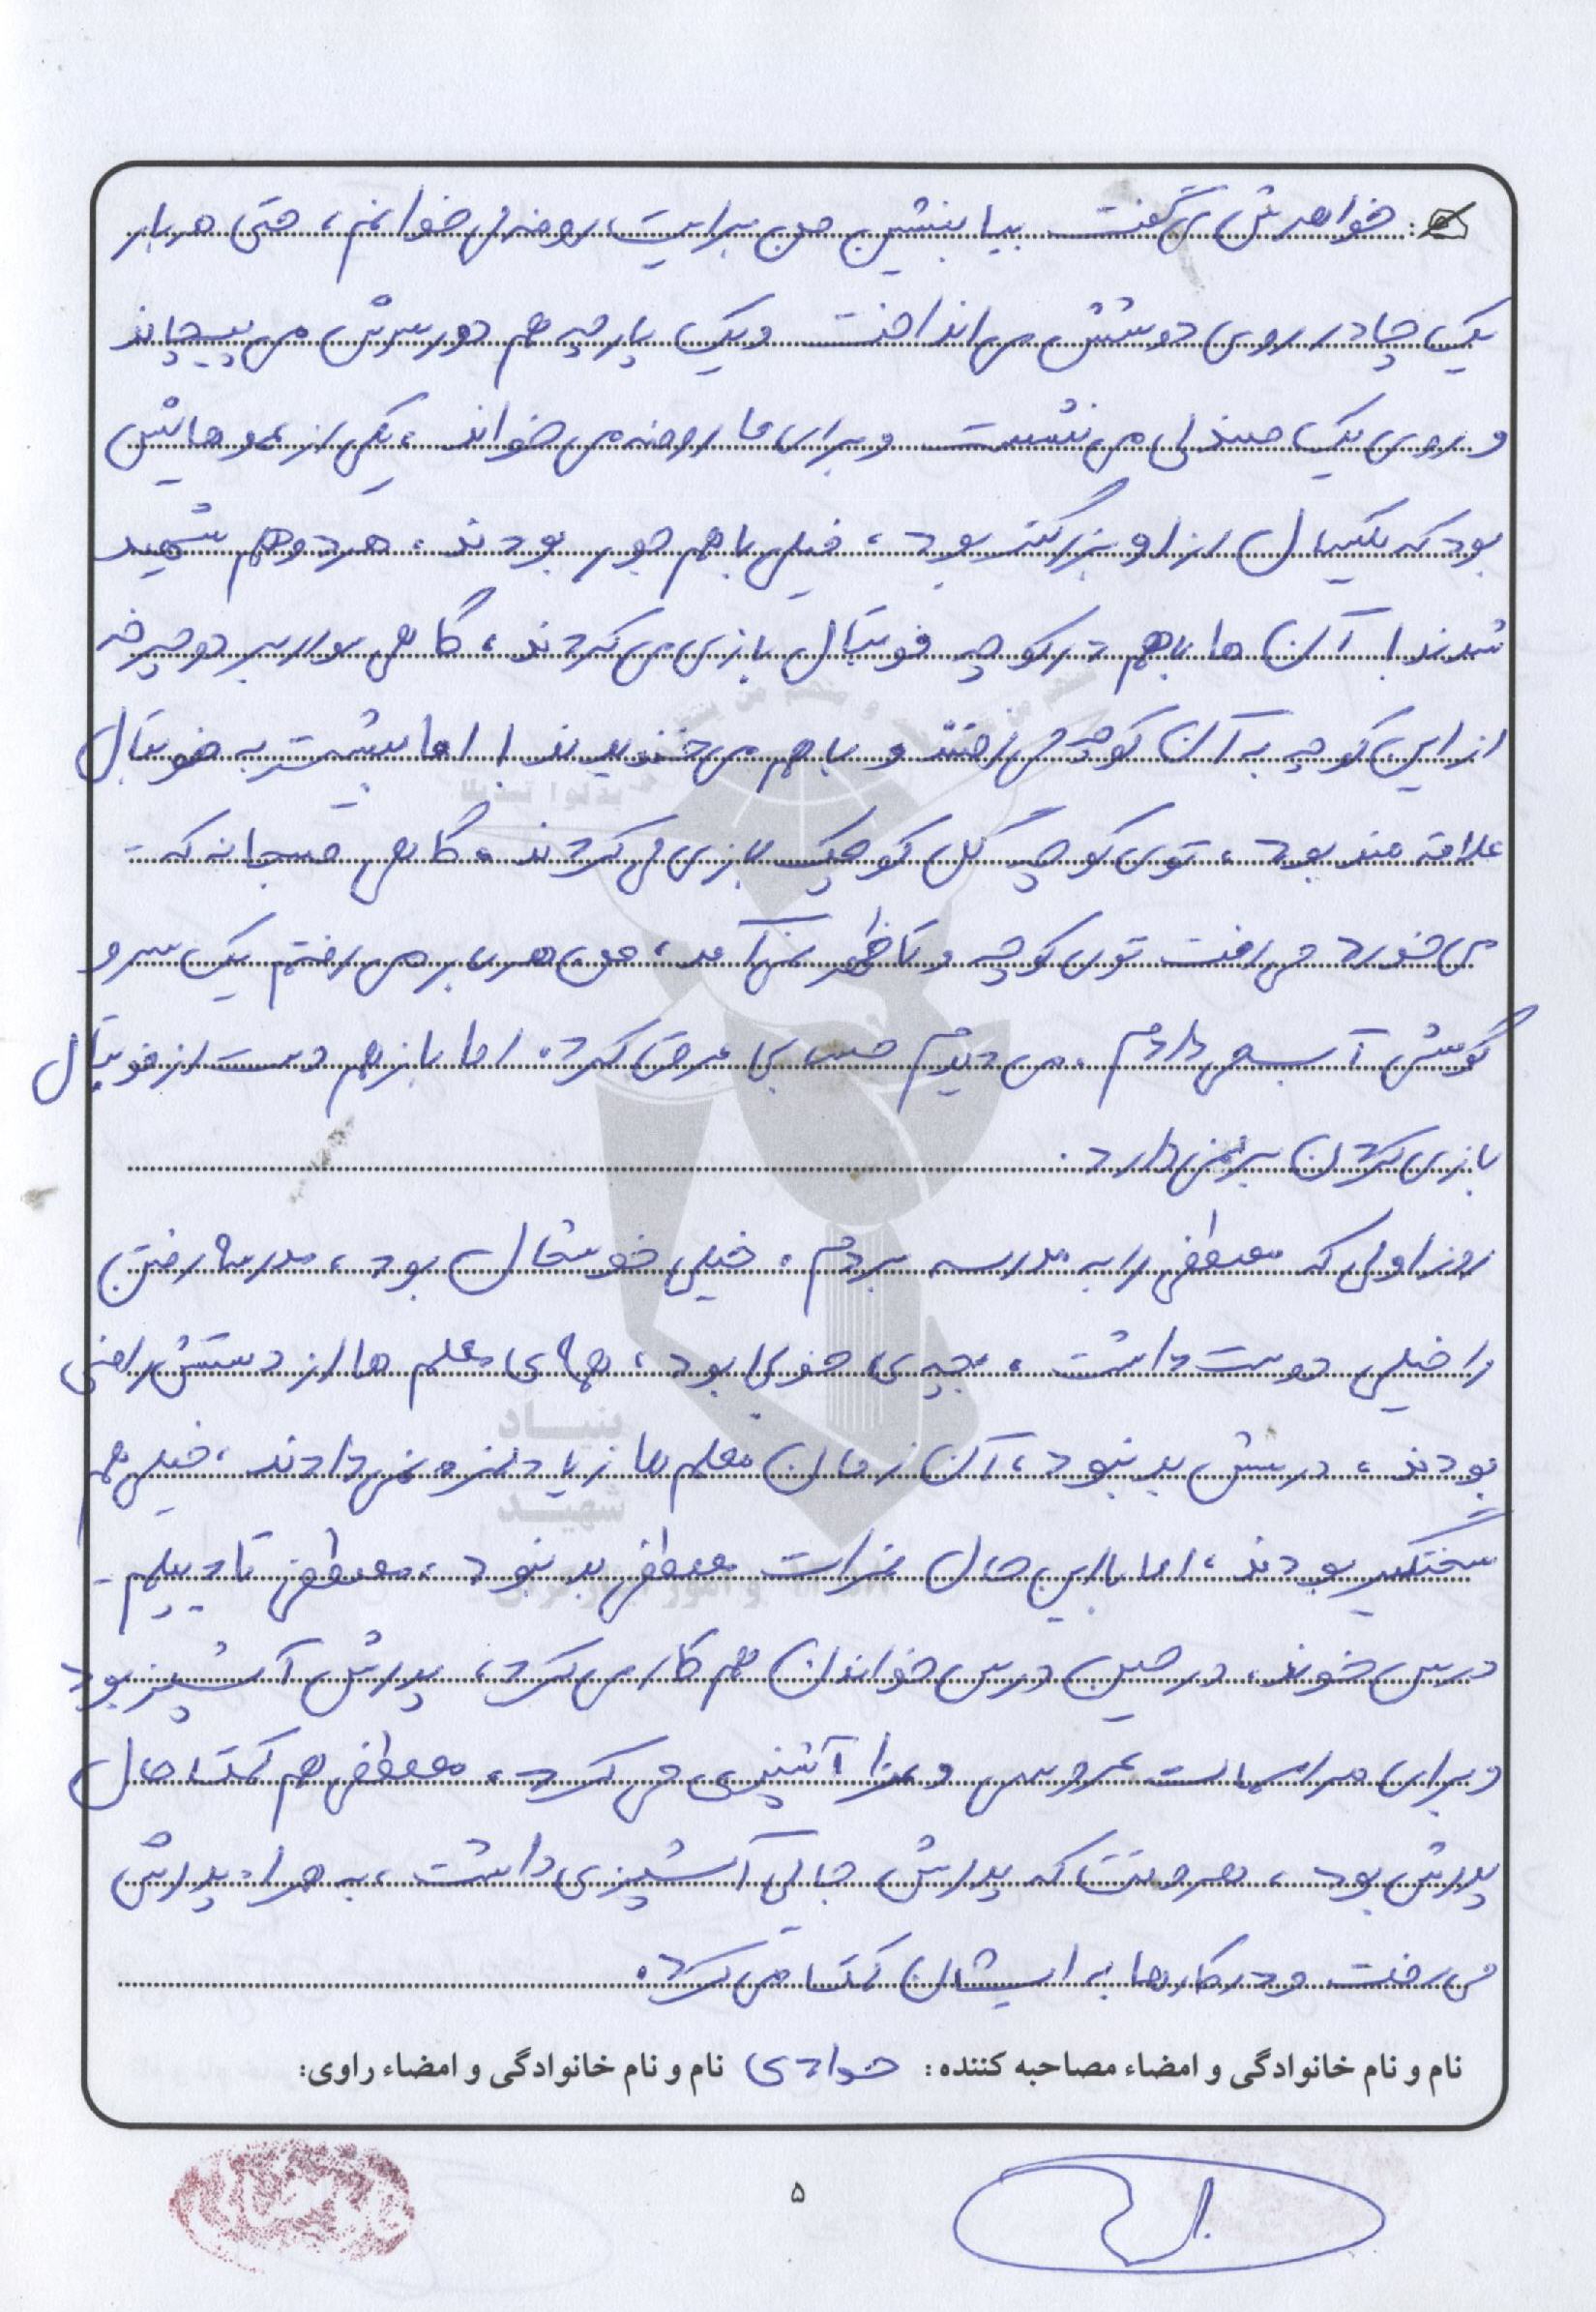 خواهرش می‌گفت بیا بنشین من برایت روضه می خوانم، حتی هر بار
یک چادر روی دوشش می انداخت و یک پارچه هم دور سرش می پیچاند
و روی یک صندلی می نشست و برای ما روضه می خواند، یکی از عموهایش
بود که یکسال از او بزرگتر بود، خیلی با هم جور بودند، هر دو هم شهید
شدند! آن ها باهم در کوچه فوتبال بازی می کردند، گاهی سوار بر دوچرخه
از این کوچه به آن کوچه می رفتند و با هم می خندیدند! اما بیشتر به فوتبال
علاقه مند بود، توی کوچه گل کوچک بازی می کردند، گاهی صبحانه که
می خورد می رفت توی کوچه و تا ظهر نمی آمد، من هر بار می رفتم یک سر و
گوش آب می دادم، می دیدم حسابی عرق کرده، اما باز هم دست از فوتبال
بازی کردن بر نمی دارد.
روز اولی که مصطفی را به مدرسه بردم، خیلی خوشحال بود، مدرسه رفتن
را خیلی دوست داشت، بچه ی خوبی بود، همه ی معلم ها از دستش راضی
بودند، درسش بد نبود، آن زمان معلم ها زیاد نمره نمی دادند، خیلی هم
سختگیر بودند، اما با این حال نمرات مصطفی بد نبود، مصطفی تا دیپلم
درس خوند، در حین درس خواندن هم کار می کرد، پدرش آشپز بود
و برای مراسمات عروسی و عزا آشپزی می کرد، مصطفی هم کمک حال
پدرش بود، هر وقت که پدرش جایی آشپزی داشت، به همراه پدرش
می رفت و در کارها به ایشان کمک می کرد.
نام و نام خانوادگی و امضاء مصاحبه کننده: نام و نام خانوادگی و امضاء راوی:
۵
بنیاد
شهید